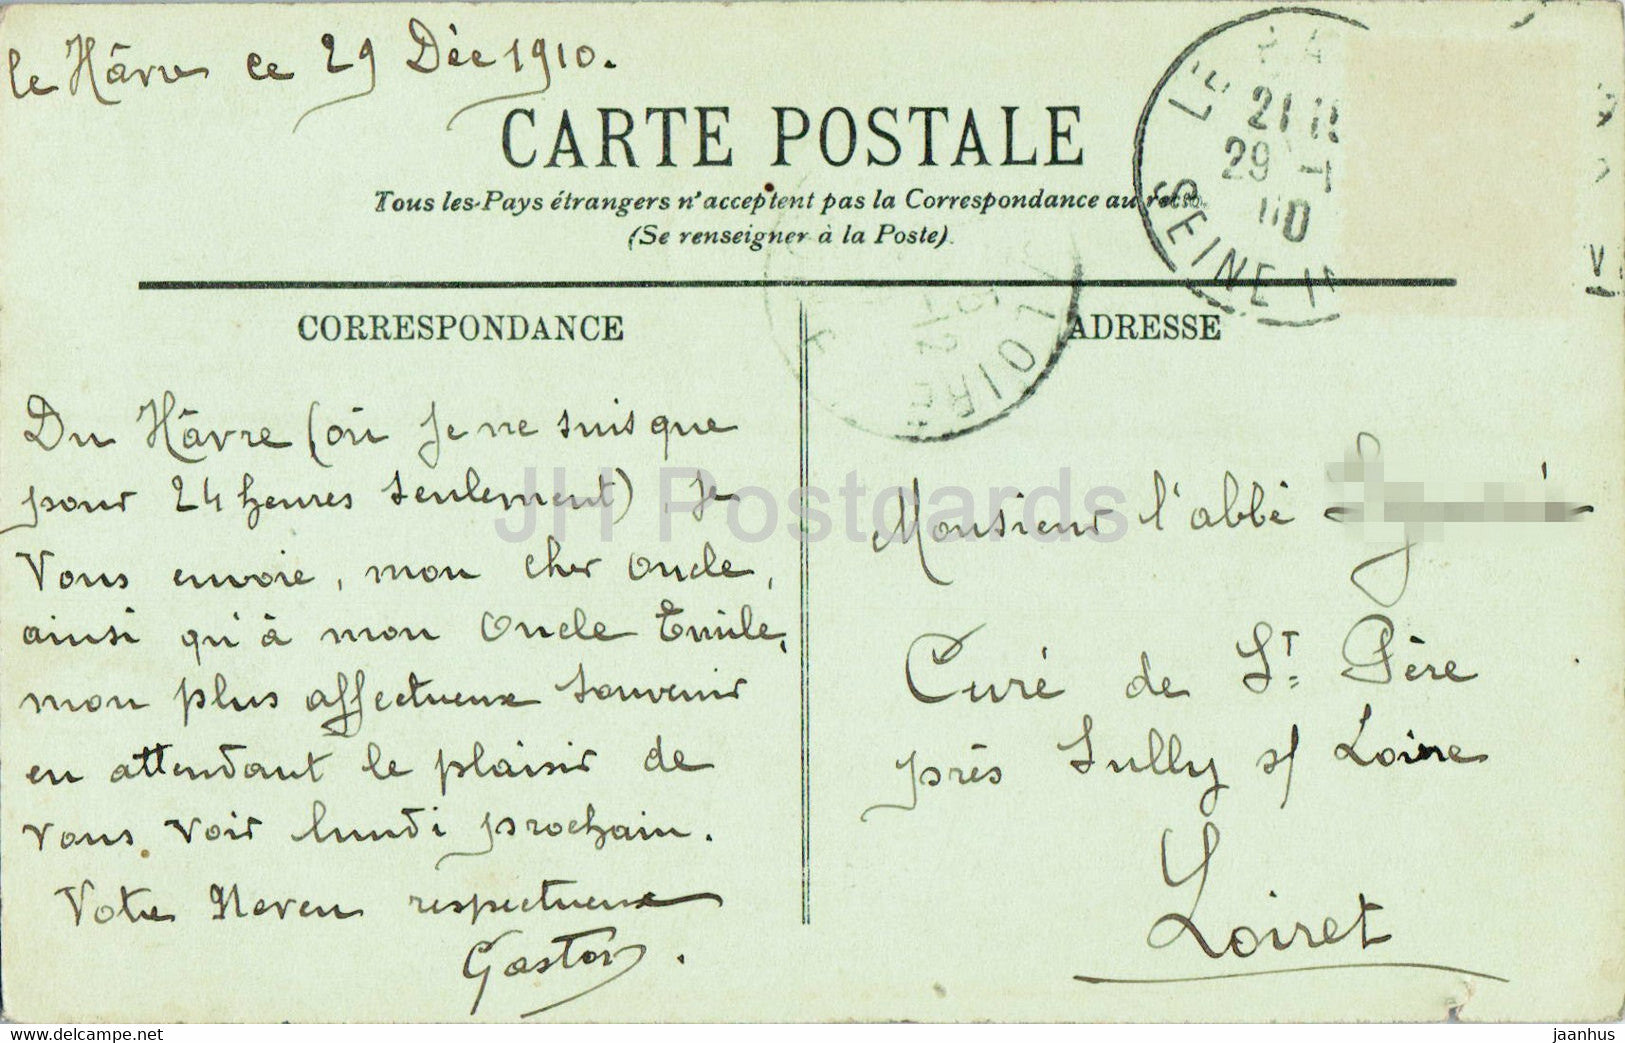 le Hâvre ce 29 Déc 1910.
CARTE POSTALE
Tous les Pays étrangers n'acceptent pas la Correspondance au recto
(Se renseigner à la Poste).
LE HA
21
29
10
SEINE
LOIRE
CORRESPONDANCE
ADRESSE
Du Hâvre (où je ne suis que
pour 24 heures seulement) je
Vous envoie, mon cher Oncle,
ainsi qu'à mon Oncle Emile,
mon plus affectueux souvenir
en attendant le plaisir de
vous voir lundi prochain.
Votre Neveu respectueux
Gaston.
Monsieur l'abbé
Curé de St Père
près Sully s/ Loire
Loiret
JH Postcards
www.delcampe.net
jaanhus